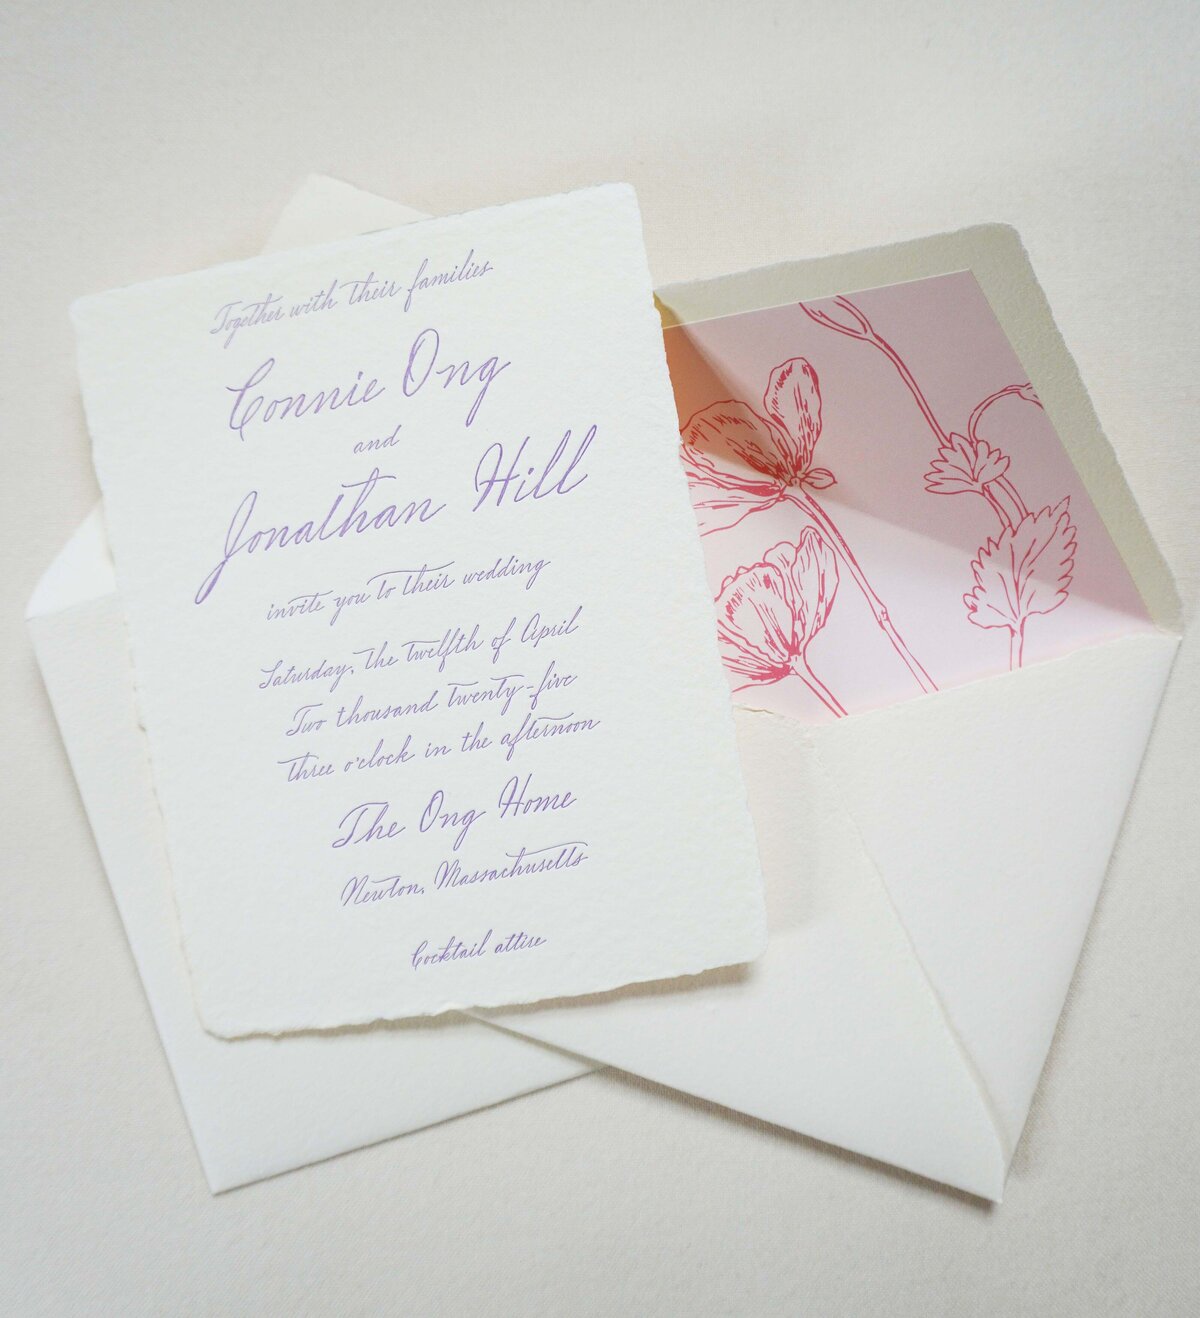 Together with their families
Connie Ong
and
Jonathan Hill
invite you to their wedding
Saturday, the twelfth of April
Two thousand twenty-five
three o'clock in the afternoon
The Ong Home
Newton, Massachusetts
Cocktail attire